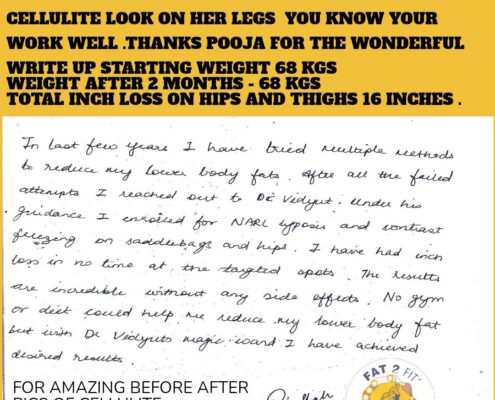 CELLULITE LOOK ON HER LEGS YOU KNOW YOUR
WORK WELL .THANKS POOJA FOR THE WONDERFUL
WRITE UP STARTING WEIGHT 68 KGS
WEIGHT AFTER 2 MONTHS - 68 KGS
TOTAL INCH LOSS ON HIPS AND THIGHS 16 INCHES .
In last few years I have tried multiple methods
to reduce my lower body fats. After all the failed
attempts I reached out to Dr Vidyut. Under his
guidance I enrolled for NARL lyposis and contrast
freezing on saddlebags and hips. I have had inch
loss in no time at the targeted spots. The results
are incredible without any side effects. No gym
or diet could help me reduce my lower body fat
but with Dr Vidyuts magic wand I have achieved
desired results.
FOR AMAZING BEFORE AFTER
PICS OF CELLULITE
FAT 2 FIT